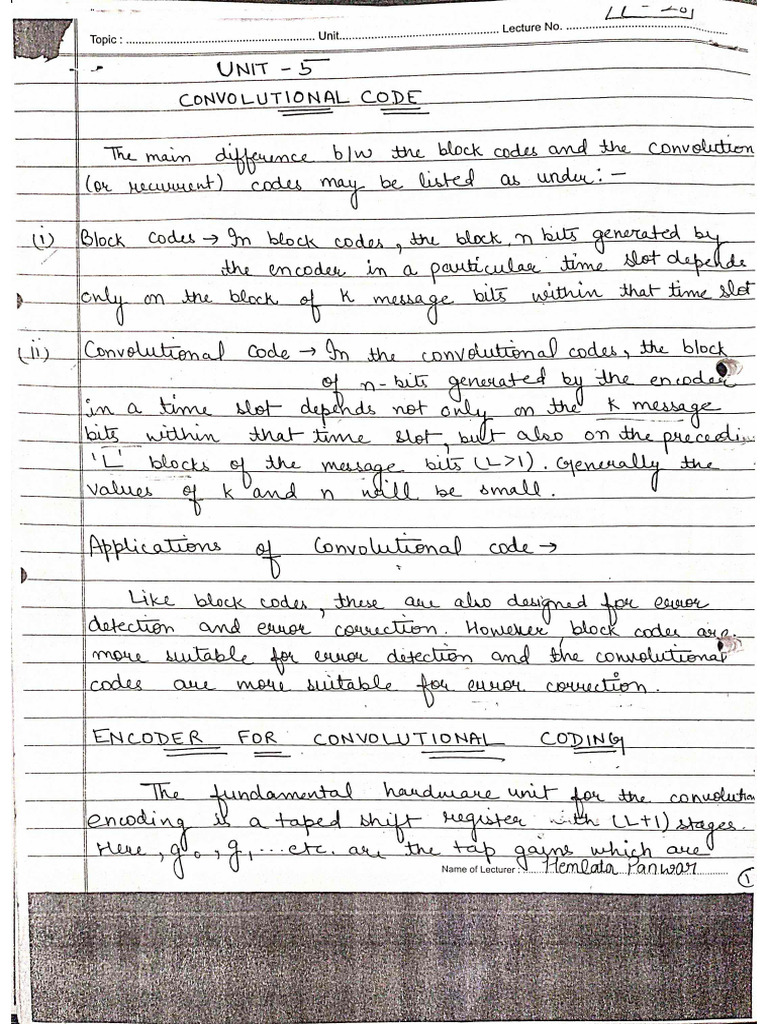 Topic : Unit Lecture No.
UNIT - 5
CONVOLUTIONAL CODE
The main difference b/w the block codes and the convolution
(or recurrent) codes may be listed as under:-
(i) Block codes → In block codes, the block n bits generated by
the encoder in a particular time slot depends
only on the block of k message bits within that time slot
(ii) Convolutional Code → In the convolutional codes, the block
of n-bits generated by the encoder
in a time slot depends not only on the k message
bits within that time slot, but also on the
'L' blocks of the message bits (L>1). Generally the
values of k and n will be small.
Applications of Convolutional code →
Like block codes, these are also designed for error
detection and error correction. However, block codes are
more suitable for error detection and the convolutional
codes are more suitable for error correction.
ENCODER FOR CONVOLUTIONAL CODING
The fundamental hardware unit for the convolution
encoding is a taped shift register with (L+1) stages.
Here, g₀, g, ... etc. are the tap gains which are
Name of Lecturer : Hemlata Panwar
1